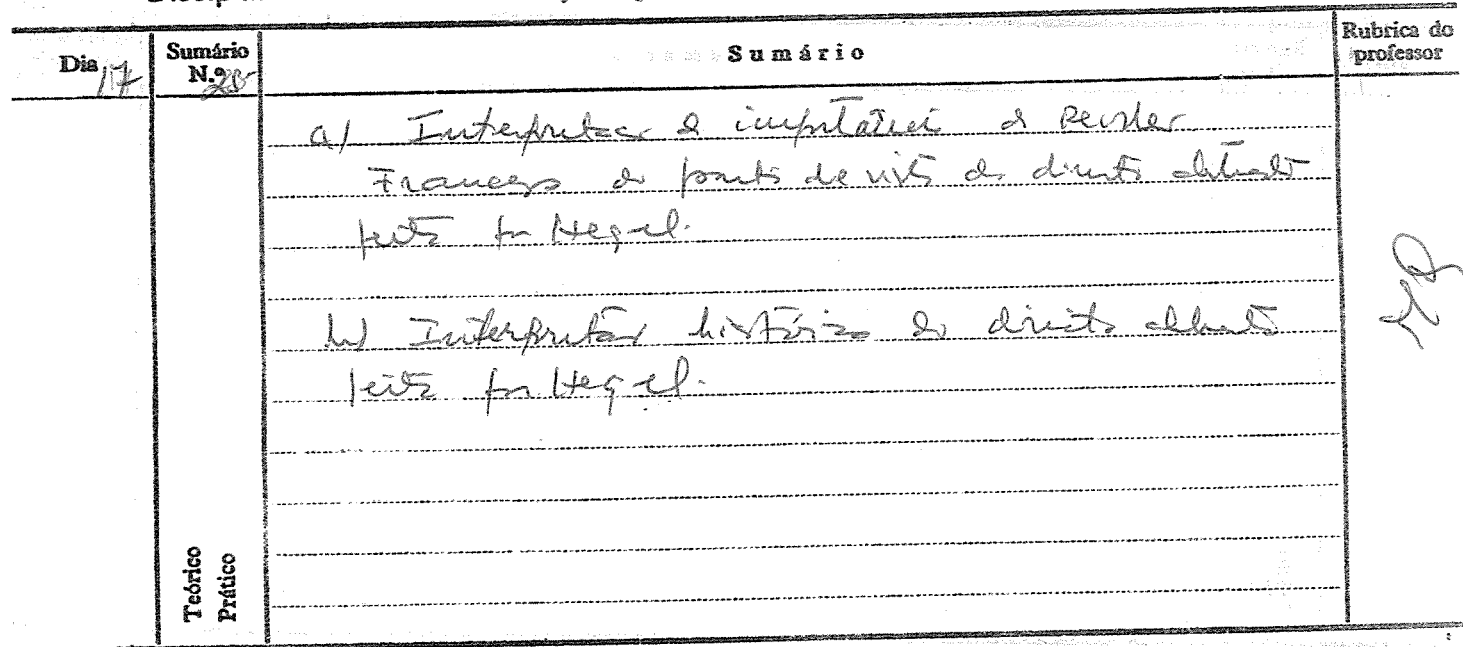 Dia 17
Sumário N.º
Sumário
Rubrica do professor
a) Interpretação da importância da
do ponto de vista do direito
feita por Hegel.
b) Interpretação histórica do direito
feita por Hegel.
Teórico
Prático